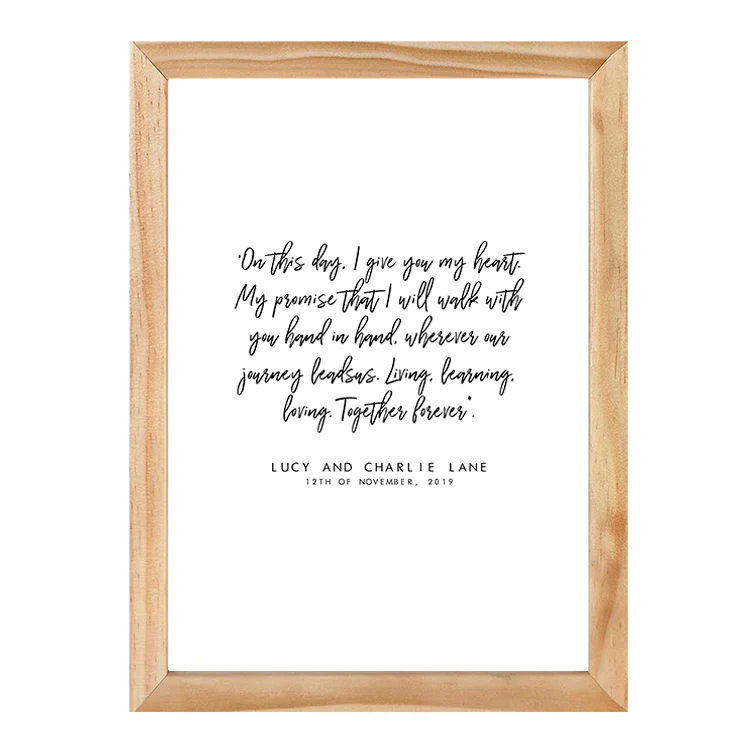 "On this day, I give you my heart.
My promise that I will walk with
you hand in hand, wherever our
journey leadsus. Living, learning,
loving. Together forever".
LUCY AND CHARLIE LANE
12TH OF NOVEMBER, 2019